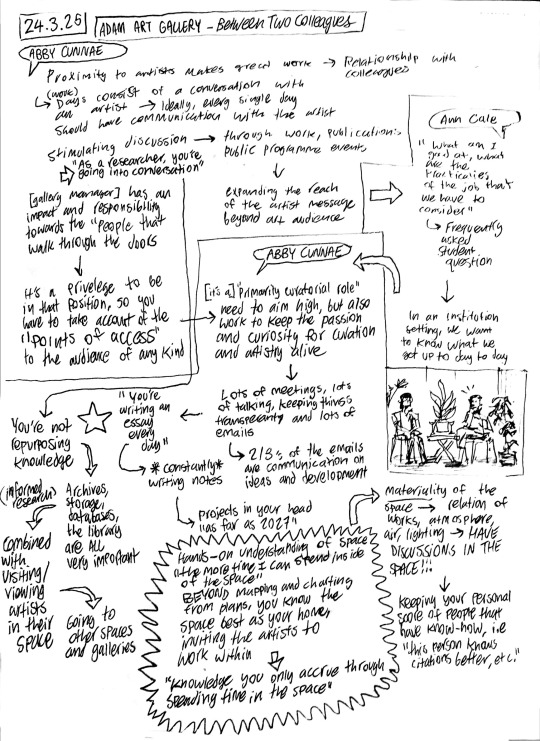 24.3.25
ADAM ART GALLERY - Between Two Colleagues
ABBY CUNNAE
Proximity to artists makes great work → Relationship with
colleagues
(work)
↳ Days consist of a conversation with
an artist → Ideally, every single day
should have communication with the artist
Stimulating discussion → through work, publications
public programme events
"As a researcher, you're
going into conversation"
[gallery manager] has an
impact and responsibility
towards the "people that
walk through the doors
It's a privelege to be
in that position, so you
have to take account of the
"points of access"
to the audience of any kind
expanding the reach
of the artist message
beyond art audience
Ann Cale
"What am I
good at, what
are the
practicalies
of the job that
we have to
comider"
↳ Frequently
asked
student
question
In an institution
setting, we want
to know what we
get up to day to day
ABBY CUNNAE
[it's a] "Primarily curatorial role"
need to aim high, but also
work to keep the passion
and curiosity for curation
and artistry alive
Lots of meetings, lots
of talking, keeping things
transparenty and lots of
emails
↳ 2/3s of the emails
are communication on
ideas and development
"You're
writing an
essay
every
day"
*constantly*
writing notes
projects in your head
"as far as 2027"
You're not
repurposing
knowledge
(informed
research)
Archives,
storage,
databases,
the library
are ALL
very important
combined
with
visiting/
viewing
artists
in their
space
Going to
other spaces
and galleries
Hands-on understanding of space
"the more time I can stend inside
of the space"
BEYOND mapping and charting
from plans, you know the
space best as your home,
inviting the artists to
work within
"Knowledge you only accrue through
spending time in the space"
Materiality of the
space → relation of
works, atmosphere,
air, lighting → HAVE
DISCUSSIONS IN THE
SPACE!!!
Keeping your personal
score of people that
have know-how, i.e
"this person knows
citations better, etc."